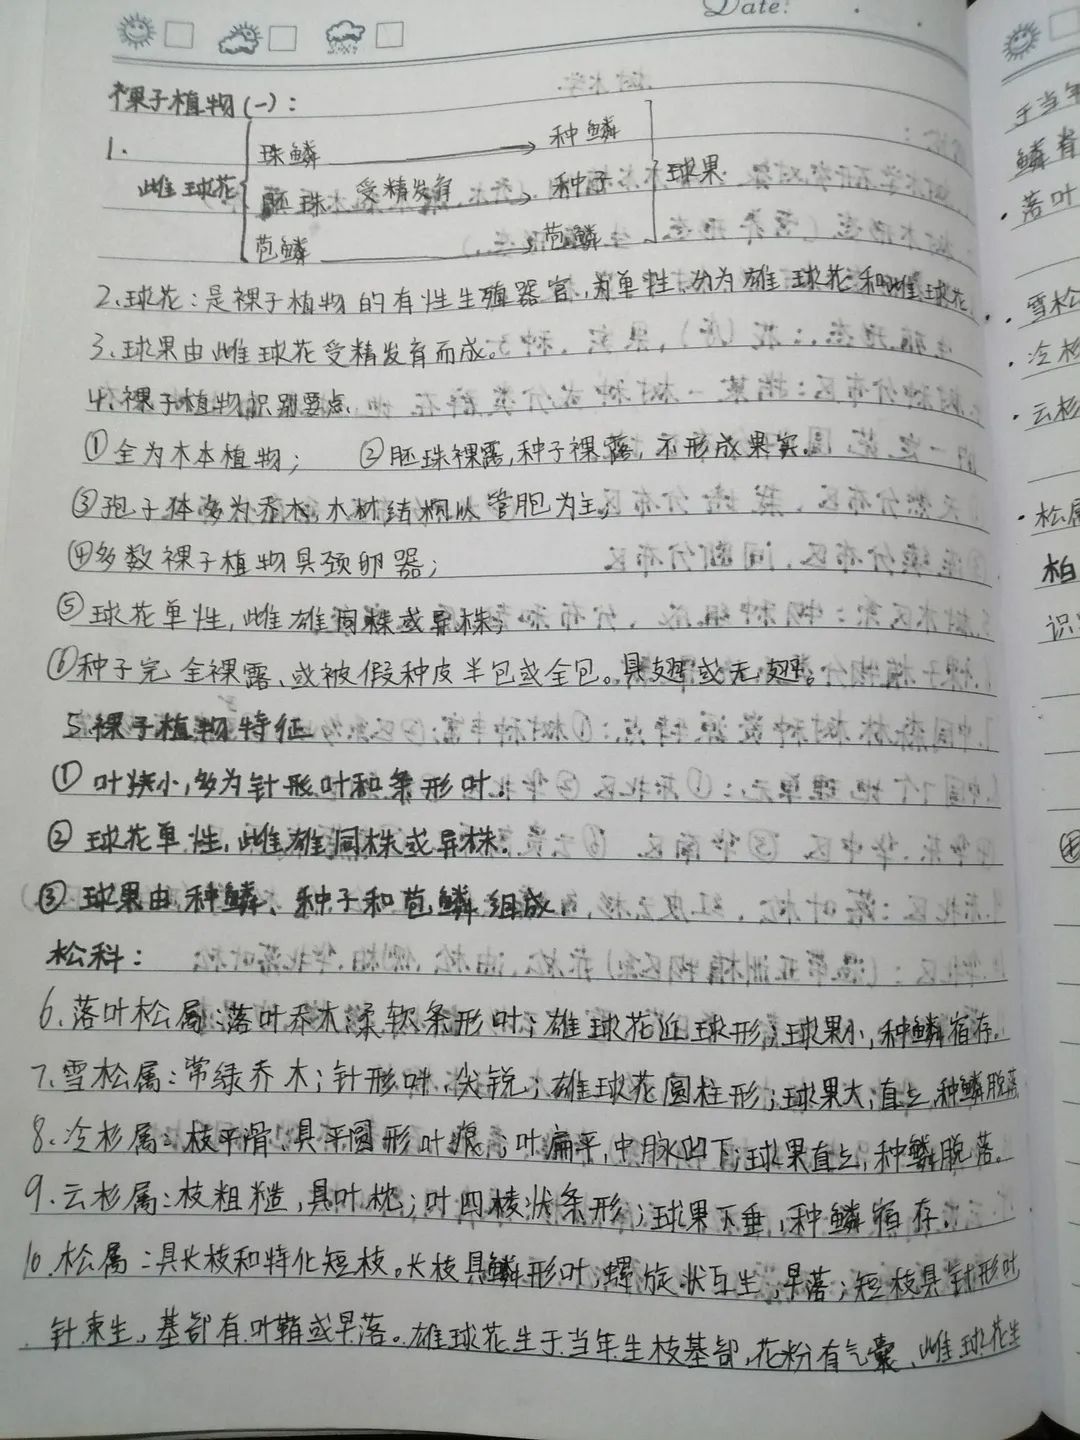 Date:
裸子植物(一):
1.
珠鳞 种鳞
雌球花 胚珠 受精发育 种子 球果
苞鳞 苞鳞
2.球花:是裸子植物的有性生殖器官,为单性,分为雄球花和雌球花
3.球果由雌球花受精发育而成。
4.裸子植物识别要点
①全为木本植物; ②胚珠裸露,种子裸露,不形成果实.
③孢子体多为乔木,木材结构以管胞为主;
④多数裸子植物具颈卵器;
⑤球花单性,雌雄同株或异株;
⑥种子完全裸露、或被假种皮半包或全包。具翅或无翅。
5.裸子植物特征
①叶狭小,多为针形叶和条形叶.
②球花单性,雌雄同株或异株.
③球果由种鳞、种子和苞鳞组成.
松科:
6.落叶松属:落叶乔木;柔软条形叶;雄球花近球形;球果小,种鳞宿存.
7.雪松属:常绿乔木;针形叶,尖锐;雄球花圆柱形;球果大;直立,种鳞脱落
8.冷杉属:枝平滑,具平圆形叶痕;叶扁平,中脉凹下;球果直立,种鳞脱落.
9.云杉属:枝粗糙,具叶枕;叶四棱状条形;球果下垂,种鳞宿存.
10.松属:具长枝和特化短枝。长枝具鳞形叶,螺旋状互生,早落;短枝具针形叶
针束生,基部有叶鞘或早落。雄球花生于当年生枝基部,花粉有气囊、雌球花生
于当年
鳞脊
·落叶
·雪松
·冷杉
·云杉
·松属
柏
识